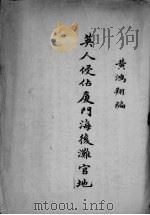 黄鴻翔編
英人侵佔廈門海後灘官地